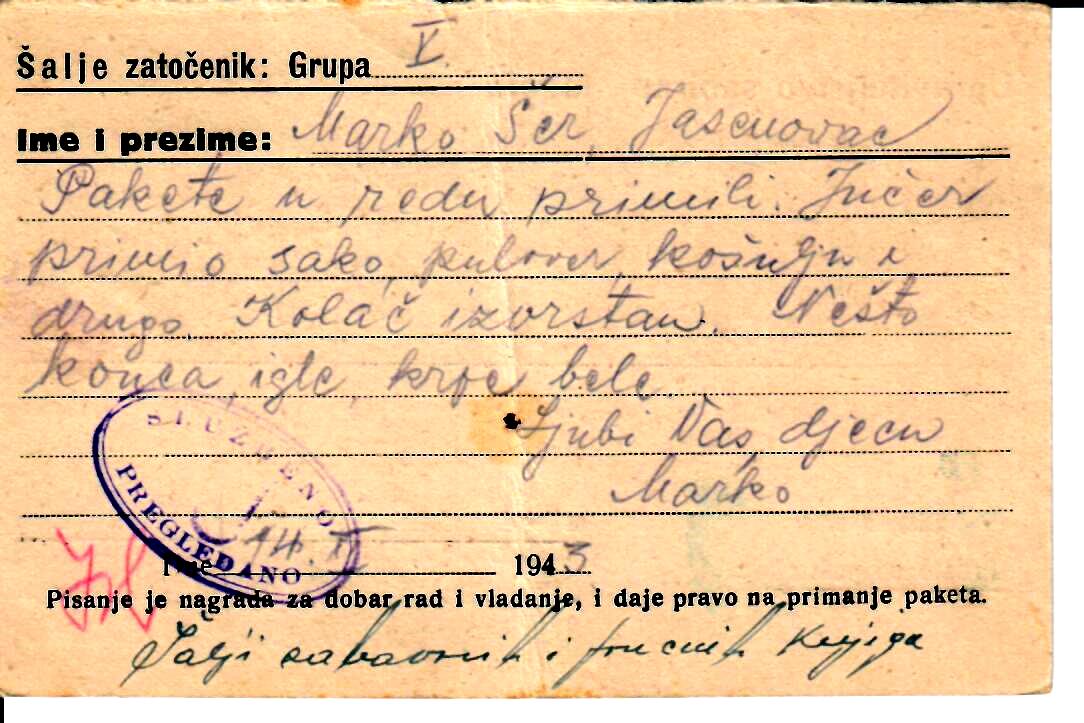 Šalje zatočenik: Grupa V.
Ime i prezime: Marko Šer, Jasenovac
Pakete u redu primili. Jučer
primio sako, pulover, košulju i
drugo. Kolač izvrstan. Nešto
konca, igle, krpe bele.
Ljubi Vas, djecu
Marko
SLUŽBENO
PREGLEDANO
14. 1943
Pisanje je nagrada za dobar rad i vladanje, i daje pravo na primanje paketa.
Šalji zabavnih i stručnih knjiga